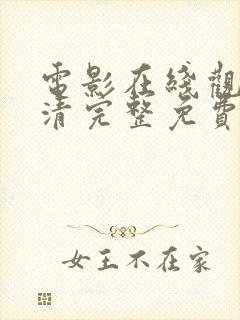 電影在綫觀
清完整免費
女王不在家